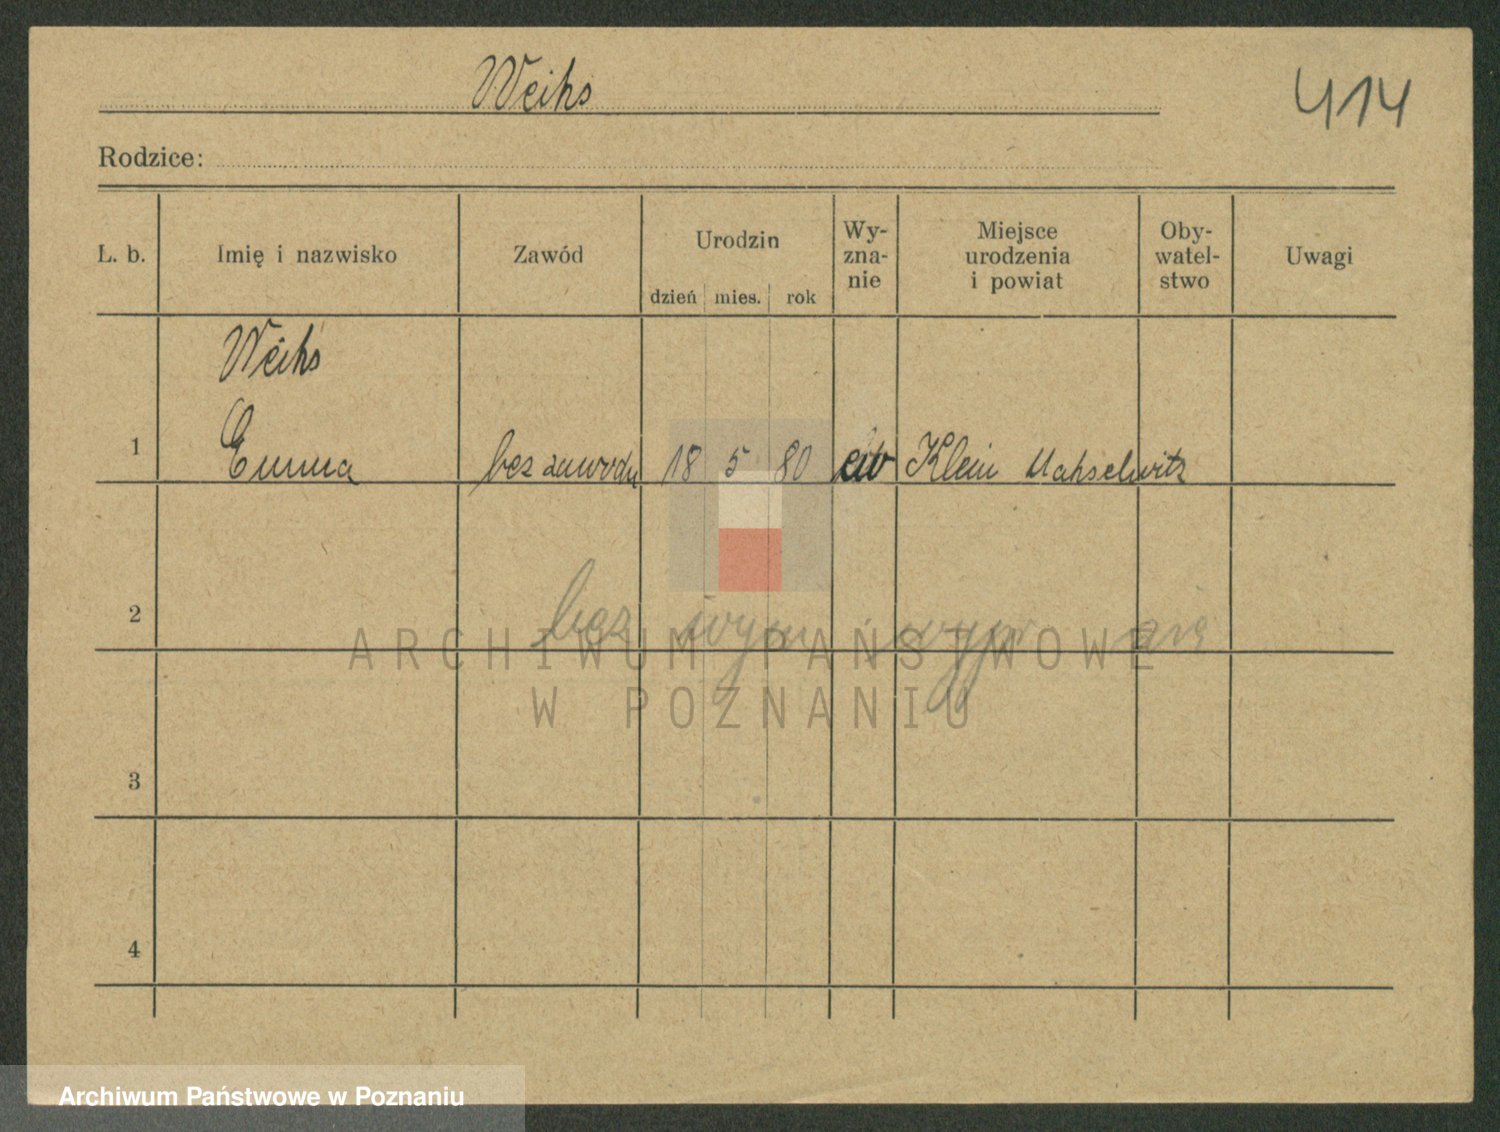 Weihs
414
Rodzice:
L. b. Imię i nazwisko Zawód Urodzin dzień mies. rok Wy-zna-nie Miejsce urodzenia i powiat Oby-watel-stwo Uwagi
Weihs
1 Emma bez zawodu 18 5 80 ew Klein Mahschwitz
2 bez
ARCHIWUM PAŃSTWOWE
W POZNANIU
3
4
Archiwum Państwowe w Poznaniu